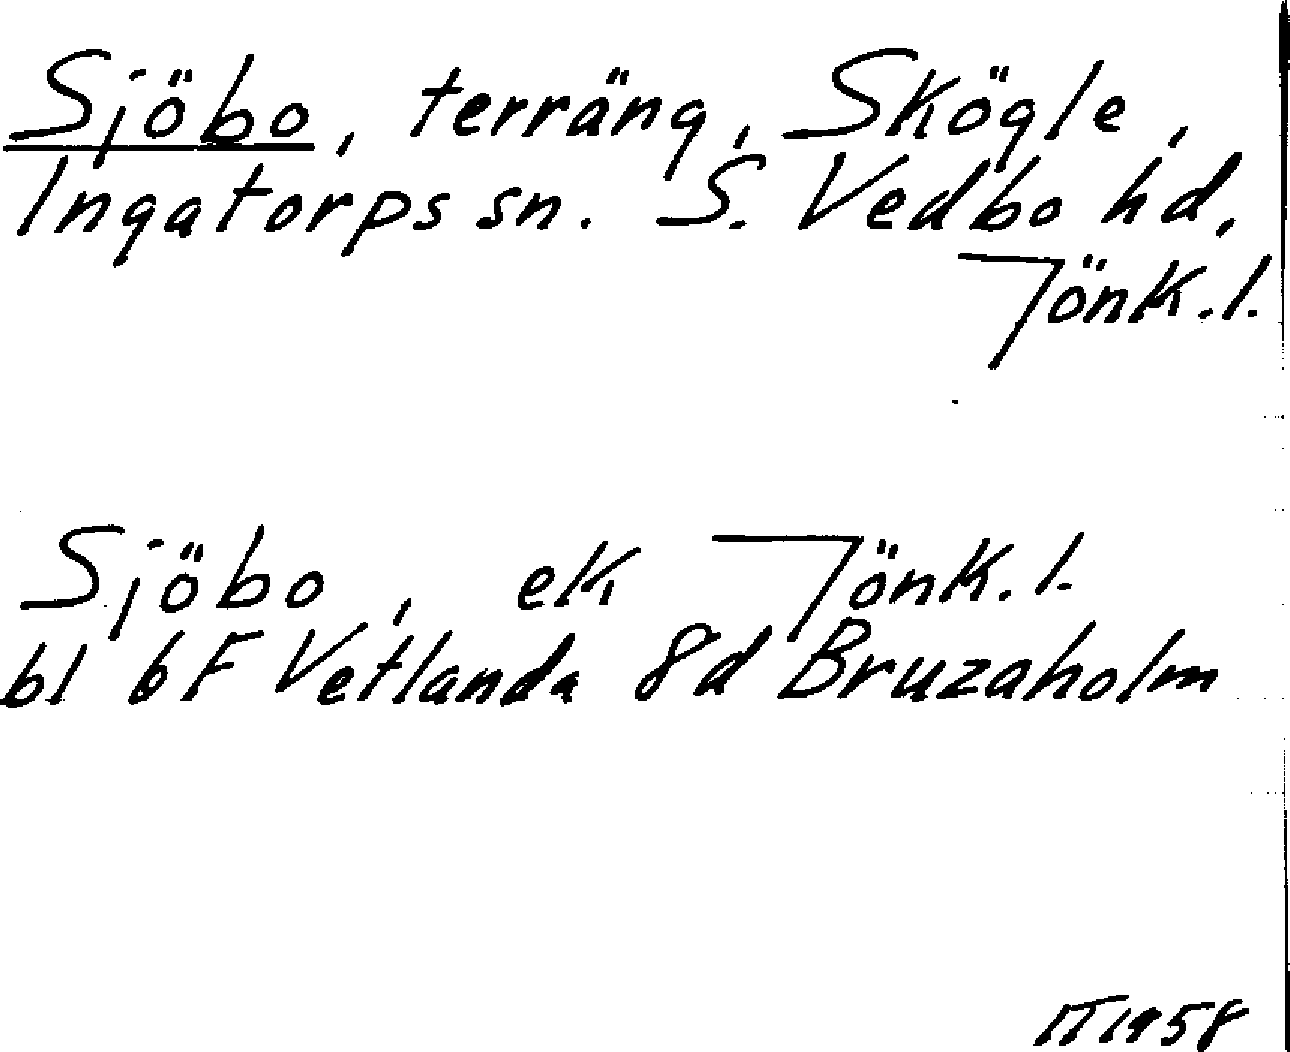 Sjöbo, terräng, Skögle,
Ingatorps sn. S. Vedbo hd.
Jönk.l.
Sjöbo, ek Jönk.l.
bl 6F Vetlanda 8d Bruzaholm
1958